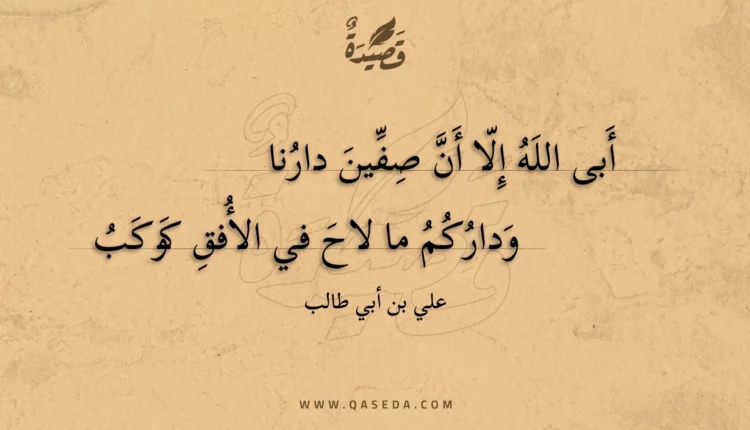 قَصِيْدَةٌ
أَبى اللَهُ إِلّا أَنَّ صِفِّينَ دارُنا
وَدارُكُمُ ما لاحَ في الأُفقِ كَوكَبُ
علي بن أبي طالب
WWW.QASEDA.COM